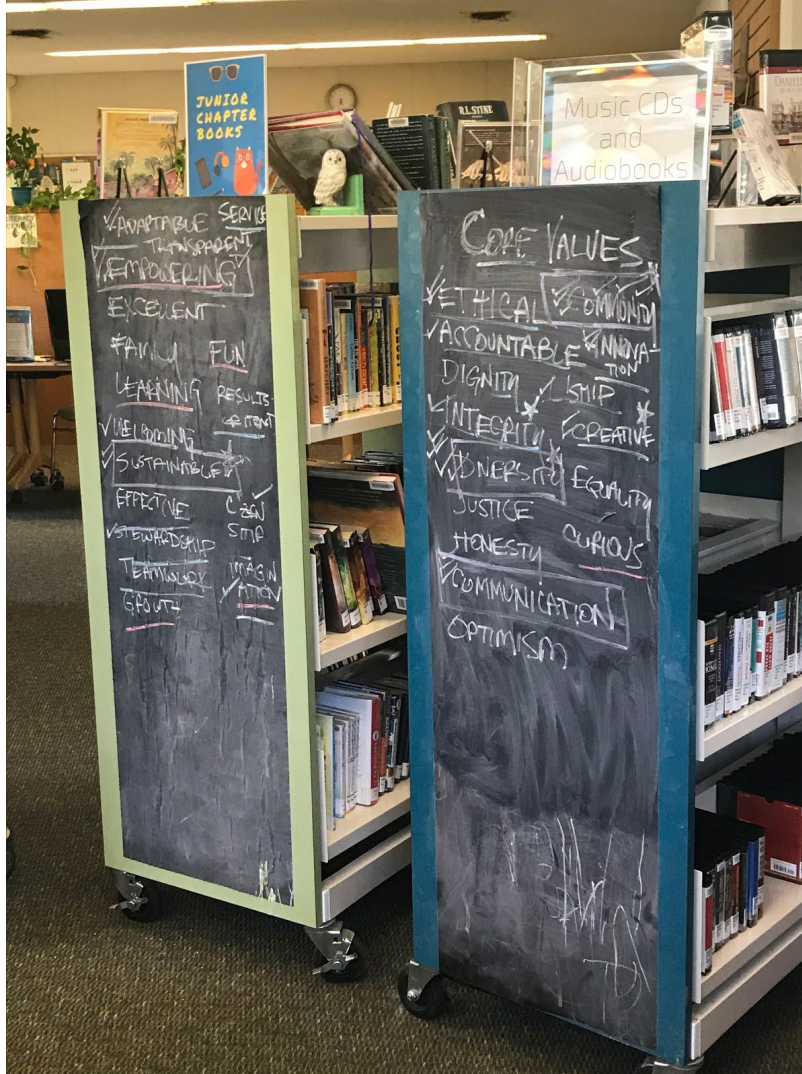 JUNIOR
CHAPTER
BOOKS
R.L. STINE
Music CDs
and
Audiobooks
ADAPTABLE SERVICE
TRANSPARENT
EMPOWERING
EXCELLENT
FAMILY FUN
LEARNING RESULTS-
WELCOMING
SUSTAINABLE
EFFECTIVE
STEWARDSHIP
TEAMWORK IMAGIN
GROWTH ATION
CORE VALUES
ETHICAL COMMUNITY
ACCOUNTABLE INNOVA-
TION
DIGNITY
INTEGRITY CREATIVE
DIVERSITY EQUALITY
JUSTICE
HONESTY CURIOUS
COMMUNICATION
OPTIMISM